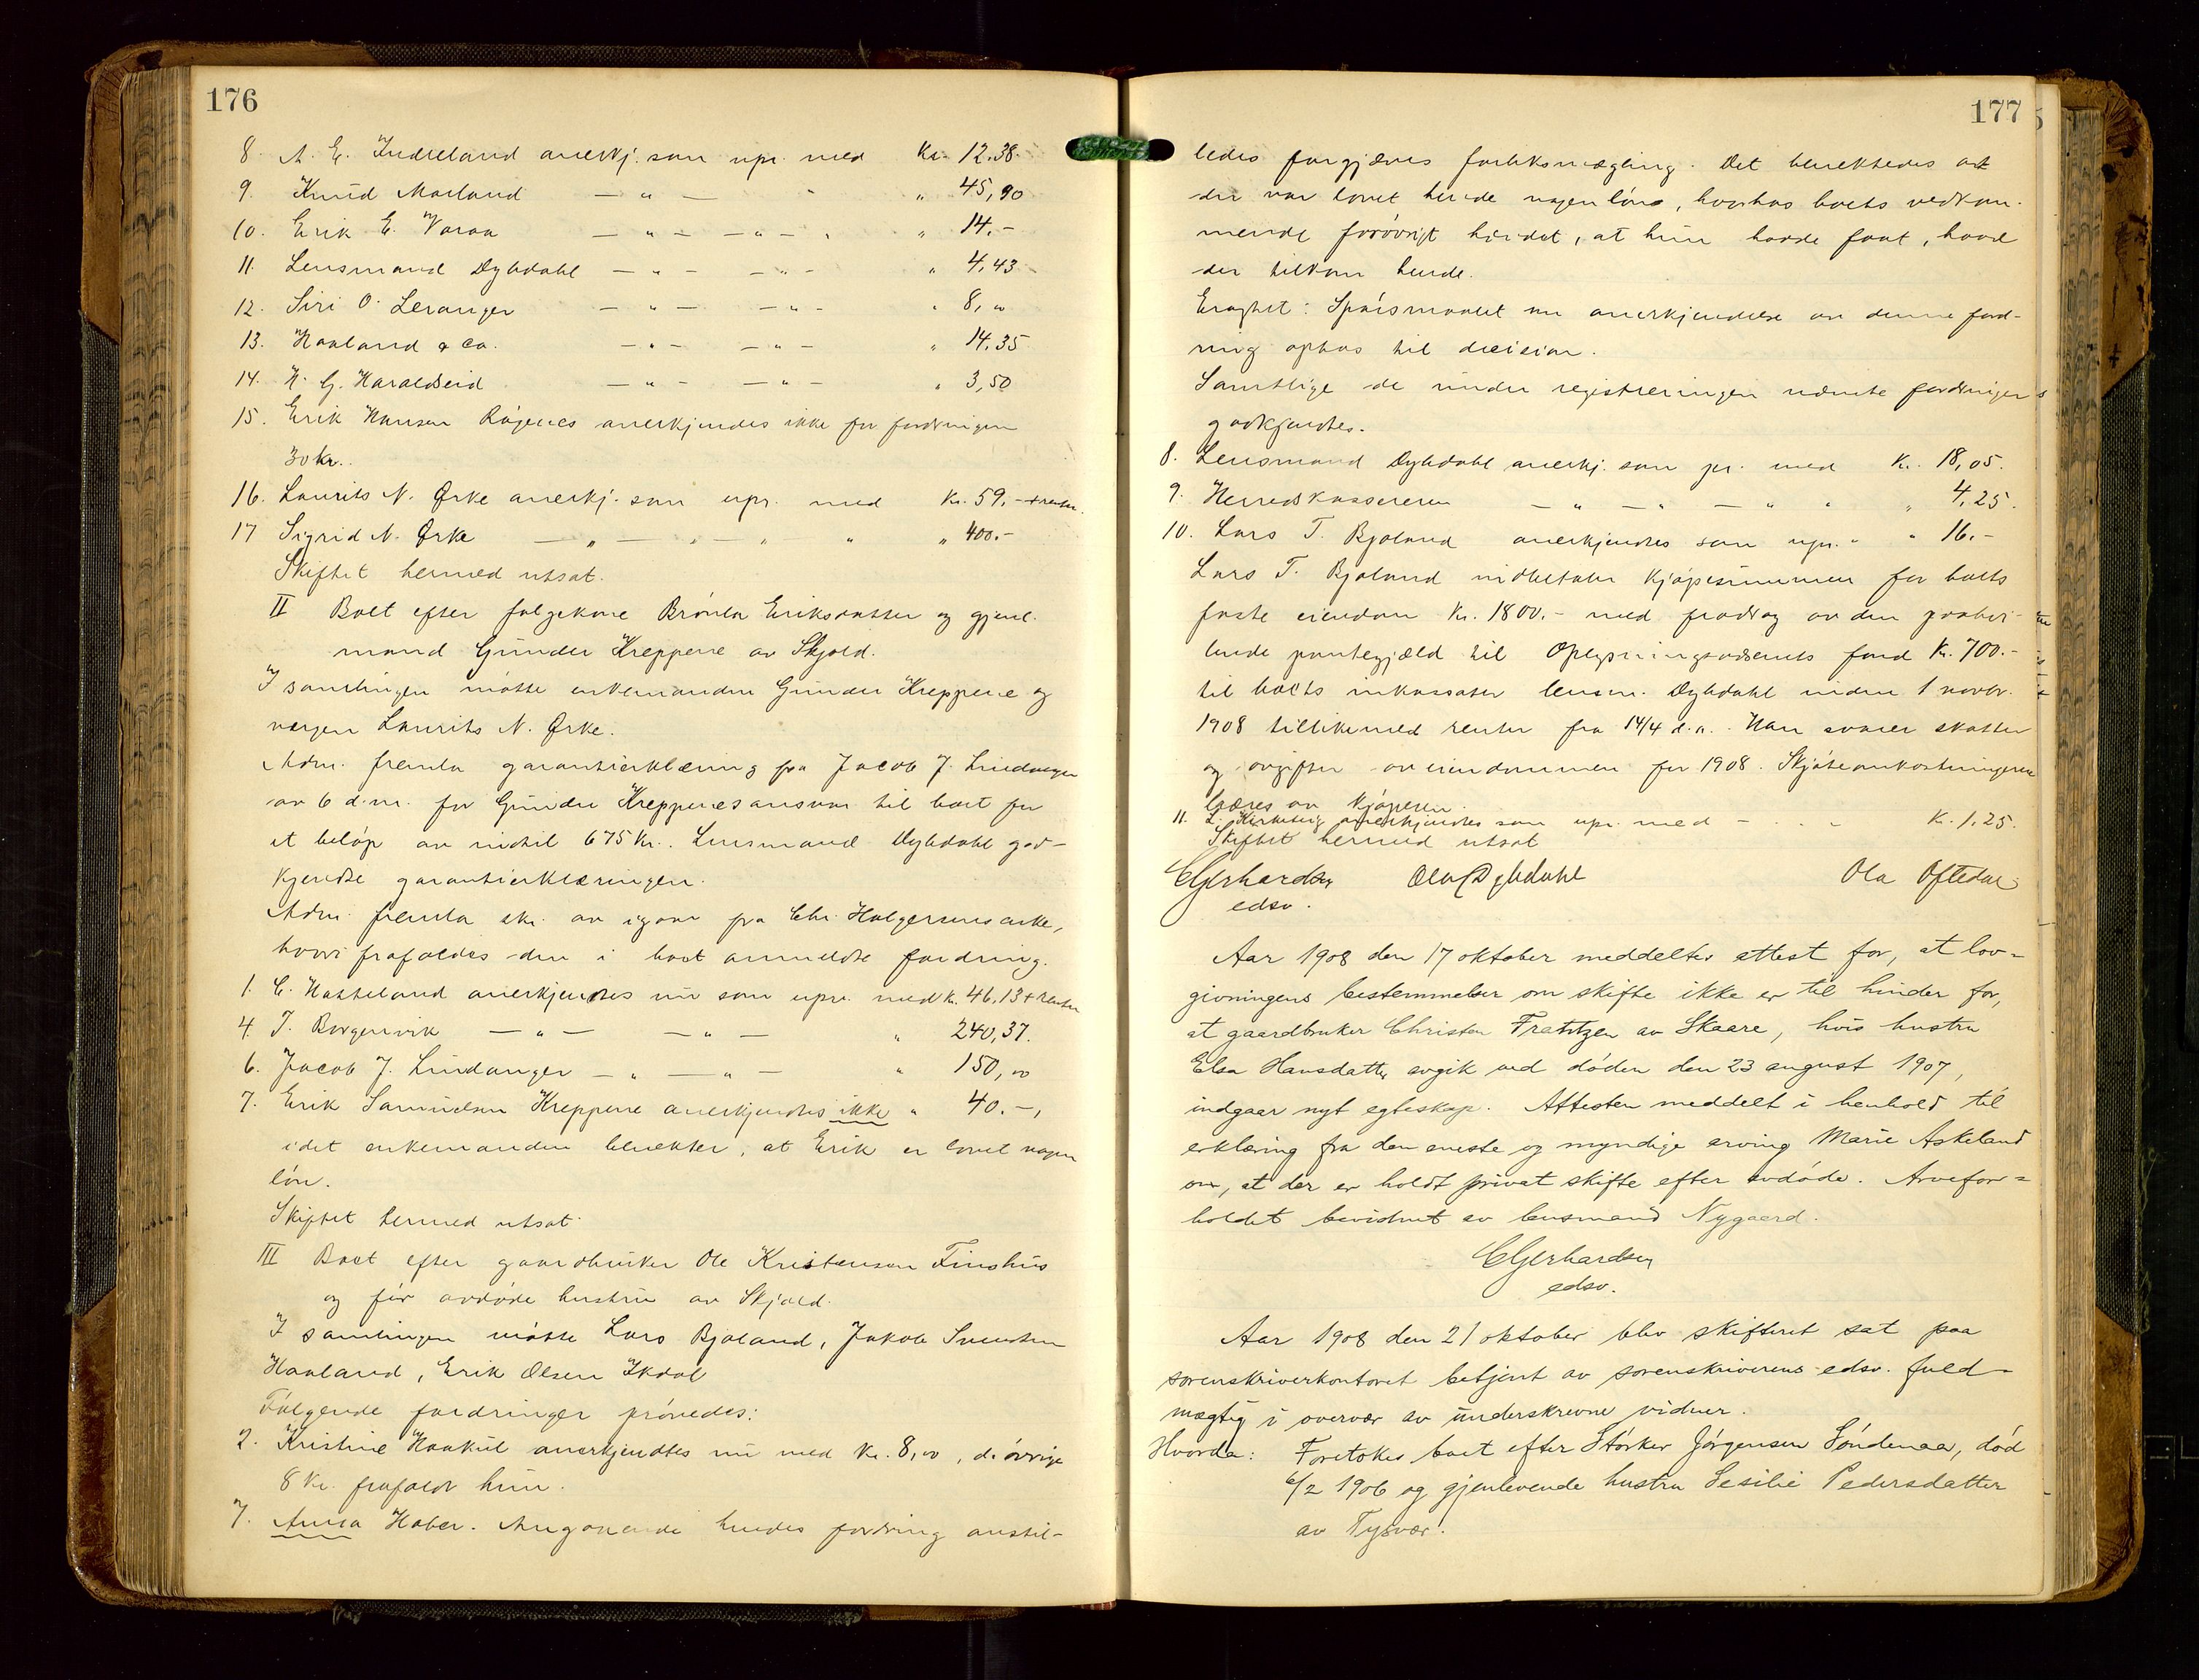 176
8. A. E. Indreland anerkj. som upr. med Kr. 12.38.
9. Knud Marland — " — " " 45,90
10. Erik E. Varaa — " — — " — " 14.-
11. Lensmand Dybdahl — " — — " — " 4,43
12. Siri O. Leranger — " — — " — " 8,00
13. Haaland & Co. — " — — " — " 14.35
14. H. G. Haraldseid — " — — " — " 3,50
15. Erik Hansen Rógenes anerkjendes ikke for fordringen
30 kr.
16. Laurits N. Ørke anerkj. som upr. med Kr. 59.- + renter.
17 Sigrid N. Ørke — " — " — " " " 400.-
Skiftet hermed utsat.
II Boet efter folgekone Brónla Eriksdatter og gjenl.
mand Gunder Kreppene av Skjold.
I samlingen mótte enkemanden Gunder Kreppene og
vergen Laurits N. Ørke.
Adm. fremla garantierklæring fra Jacob J. Lindanger
av 6 d.m. for Gunder Kreppenes ansvar til boet for
et belóp av indtil 675 Kr.. Lensmand Dybdahl god-
kjendte garantierklæringen.
Adm. fremla skr. av igaar fra Chr. Holgersens enke,
hvori frafaldes den i boet anmeldte fordring.
1. C. Hasseland anerkjendtes nu som upr. med Kr. 46,13 + renter
4. T. Borgenvik — " — — " — " 240,37.
6. Jacob J. Lindanger — " — — " — " 150,00
7. Erik Samuelsen Kreppene anerkjendtes ikke " 40.-,
idet enkemanden benekter, at Erik er lovet nogen
lón.
Skiftet hermed utsat.
III Boet efter gaardbruker Ole Kristensen Finshus
og fór avdóde hustru av Skjold.
I samlingen mótte Lars Bjoland, Jakob Svendsen
Haaland, Erik Olsen Ikdal
Fólgende fordringer próvedes:
2. Kristine Haakul anerkjendtes nu med Kr. 8,00, de óvrige
8 Kr. frafaldt hun.
7. Anna Haber. Angaaende hendes fordring anstil-
177
ledes forgjæves forliksmægling. Det benektedes at
der var lovet hende nogen lón, hvorhos boets vedkom-
mende foróvrigt hævdet, at hun hadde faat, hvad
der tilkom hende.
Eragtet: Spórsmaalet om anerkjendelse av denne ford-
ring optas til decision.
Samtlige de under registreringen nævnte fordringer
godkjendtes.
8. Lensmand Dybdahl anerkj. som pr. med Kr. 18,05.
9. Herredskassereren — " — " — " " " 4,25.
10. Lars T. Bjoland anerkjendtes som upr. " " 16.-
Lars T. Bjoland indbetaler kjópesummen for boets
faste eiendom Kr. 1800.- med fradrag av den paahei-
lende pantegjæld til Oplysningsvæsenets fond Kr. 700.-
til boets inkassator lensm. Dybdahl inden 1 novbr.
1908 tillikemed renter fra 14/4 d.a. Han svarer skatter
og avgifter av eiendommen for 1908. Skjóteomkostningerne
bæres av kjóperen.
11. L. Kirkeberg anerkjendtes som upr. med - . . - Kr. 1,25.
Skiftet hermed utsat
CGerhardsen Ola Dybdahl Ola Oftedal
edsv.
Aar 1908 den 17 oktober meddeltes attest for, at lov-
givningens bestemmelser om skifte ikke er til hinder for,
at gaardbruker Christen Frantzen av Skaare, hvis hustru
Elsa Hansdatter avgik ved dóden den 23 august 1907,
indgaar nyt egteskap. Attesten meddelt i henhold til
erklæring fra den eneste og myndige arving Marie Askeland
om, at der er holdt privat skifte efter avdóde. Arvefor-
holdet bevidnet av lensmand Nygaard.
CGerhardsen
edsv.
Aar 1908 den 21 oktober blev skifteret sat paa
sorenskriverkontoret betjent av sorenskriverens edsv. fuld-
mægtig i overvær av underskrevne vidner.
Hvorda: Foretokes boet efter Stórker Jórgensen Sóndenaa, dód
6/2 1906 og gjenlevende hustru Sesilie Pedersdatter
av Tysvær.